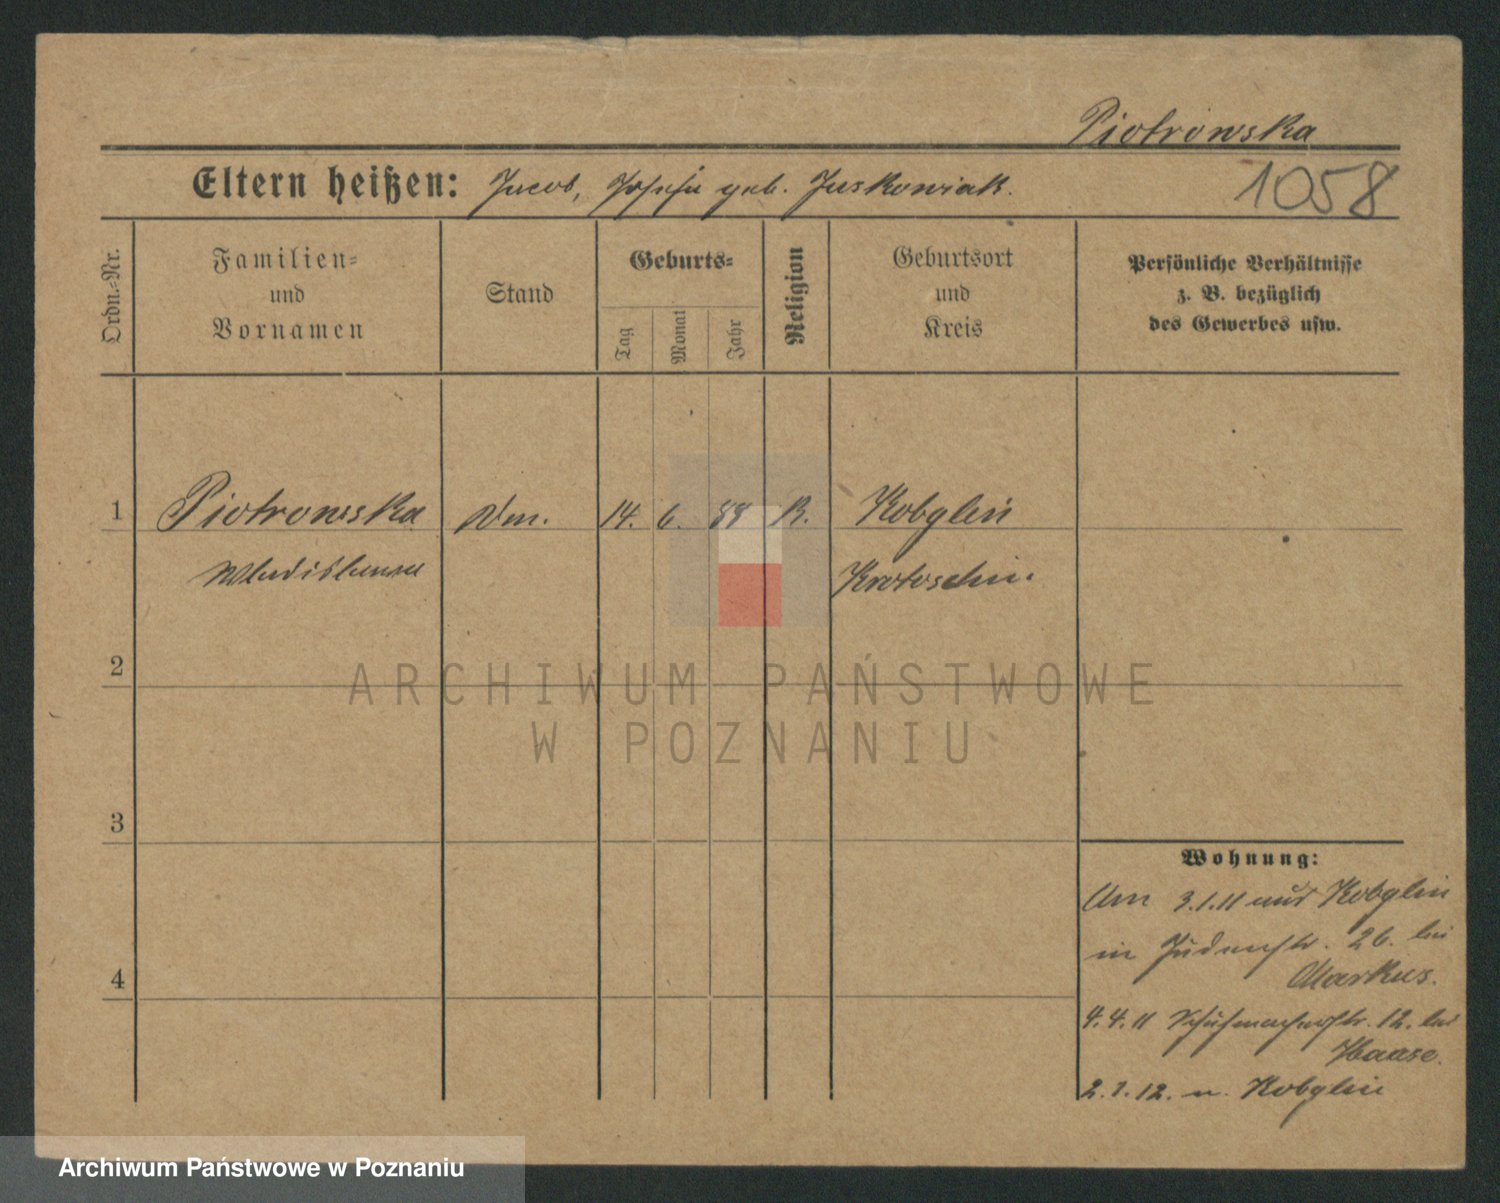 Piotrowska
Eltern heißen: Jacob, Josefa geb. Juskowiak.
1058
Ordn.-Nr.
Familien-
und
Vornamen
Stand
Geburts-
Tag
Monat
Jahr
Religion
Geburtsort
und
Kreis
Persönliche Verhältnisse
z. B. bezüglich
des Gewerbes usw.
1 Piotrowska 14. 6. 88 K. Kobylin
Wladislawa Krotoschin.
2
3
4
Wohnung:
Am 3.1.11 aus Kobylin
in Judenstr. 26. bei
Markus.
4.4.11 Schuhmacherstr. 12. bei
Haase.
2.1.12. n. Kobylin
ARCHIWUM PAŃSTWOWE
W POZNANIU
Archiwum Państwowe w Poznaniu